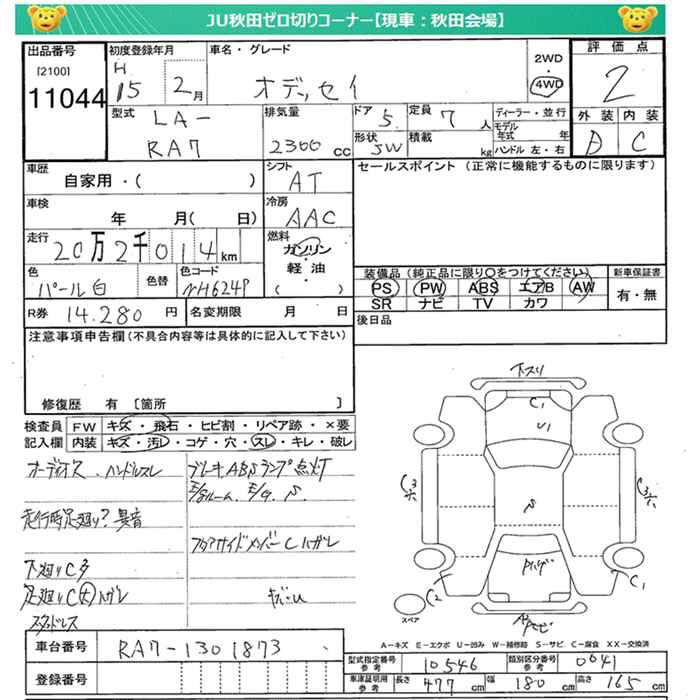 JU秋田ゼロ切りコーナー【現車：秋田会場】
出品番号 [2100] 11044
初度登録年月 H 15 2月
車名・グレード オデッセイ
2WD・4WD
評価点 2
外装 D 内装 C
型式 LA- RA7
排気量 2300 cc
ドア 5 形状 5W
定員 7 人 積載 kg
ディーラー・並行
モデル年式 年
ハンドル 左・右
車歴 自家用・( )
シフト AT
セールスポイント (正常に機能するものに限ります)
車検 年 月( 日)
冷房 AAC
走行 20万2千014km
燃料 ガソリン・軽油・( )
色 パール白 色替 色コード NH624P
装備品(純正品に限り○をつけてください)
PS PW ABS エアB AW
SR ナビ TV カワ
新車保証書 有・無
R券 14.280 円 名変期限 月 日
後日品
注意事項申告欄(不具合内容等は具体的に記入して下さい)
修復歴 有 [箇所 ]
検査員記入欄
FW キズ・飛石・ヒビ割・リペア跡・×要
内装 キズ・汚れ・コゲ・穴・スレ・キレ・破レ
ハンドルスレ
ブレーキABSランプ点灯
走行時足廻り?異音
下廻りC多
足廻りC大ハガレ
スタッドレス
下スリ
C1
U1
C3
C3
C2
C1
スペア
A－キズ E－エクボ U－凹み W－補修跡 S－サビ C－腐食 XX－交換済
車台番号 RA7-1301873
登録番号
型式指定番号 参考 10546 類別区分番号 参考 0041
車庫証明用 参考 長さ 477cm 幅 180cm 高さ 165cm